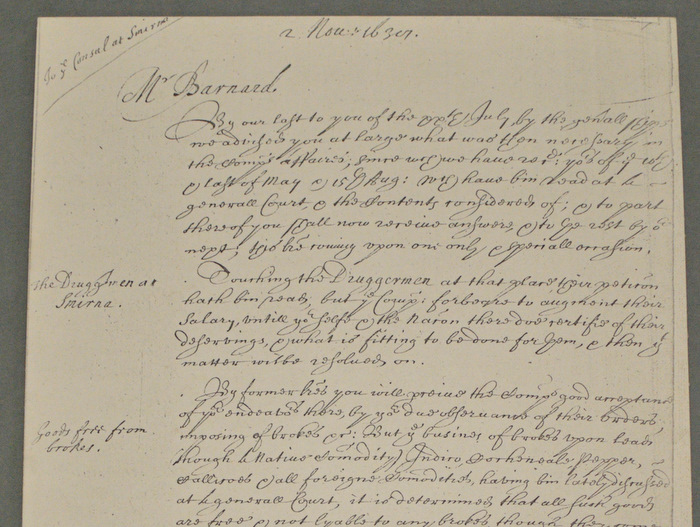 To yᵉ Consul at Smirna
2 Nou: 1637.
Mʳ Barnard.
By our last to you of the July, by the genall
we advised you at large what was then necessary in
the Compˢ affaires; since wᶜʰ we haue : of yᵉ
last of May & 15ᵗʰ Aug: wᶜʰ haue bin read at a
generall Court, & the Contents considered of; & to part
thereof you shall now receiue answere, & to the rest by oʳ
next; this coming upon one only & speciall occasion.
the Druggermen at
Smirna.
Touching the Druggermen at that place their peticon
hath bin read, but yᵉ Comp: forbeare to augment their
Salary, untill yoʳ selfe & the Nacon there doe certifie of their
deservings, & what is fitting to be done for them, & then yᵉ
matter wilbe resolued on.
Goods free from
brokes.
By former you will the Compˢ good acceptance
of yoʳ endeaoʳˢ there, by yoʳ due obseruance of their orders
imposing of brokes &c: But yᵉ busines of brokes upon Lead
(though a Natiue Comodity) Indico, Cocheneale, Pepper,
& all foreigne Comodities, having bin lately discussed
at a generall Court, it is determined that all such goods
are free & not lyable to any brokes though they come